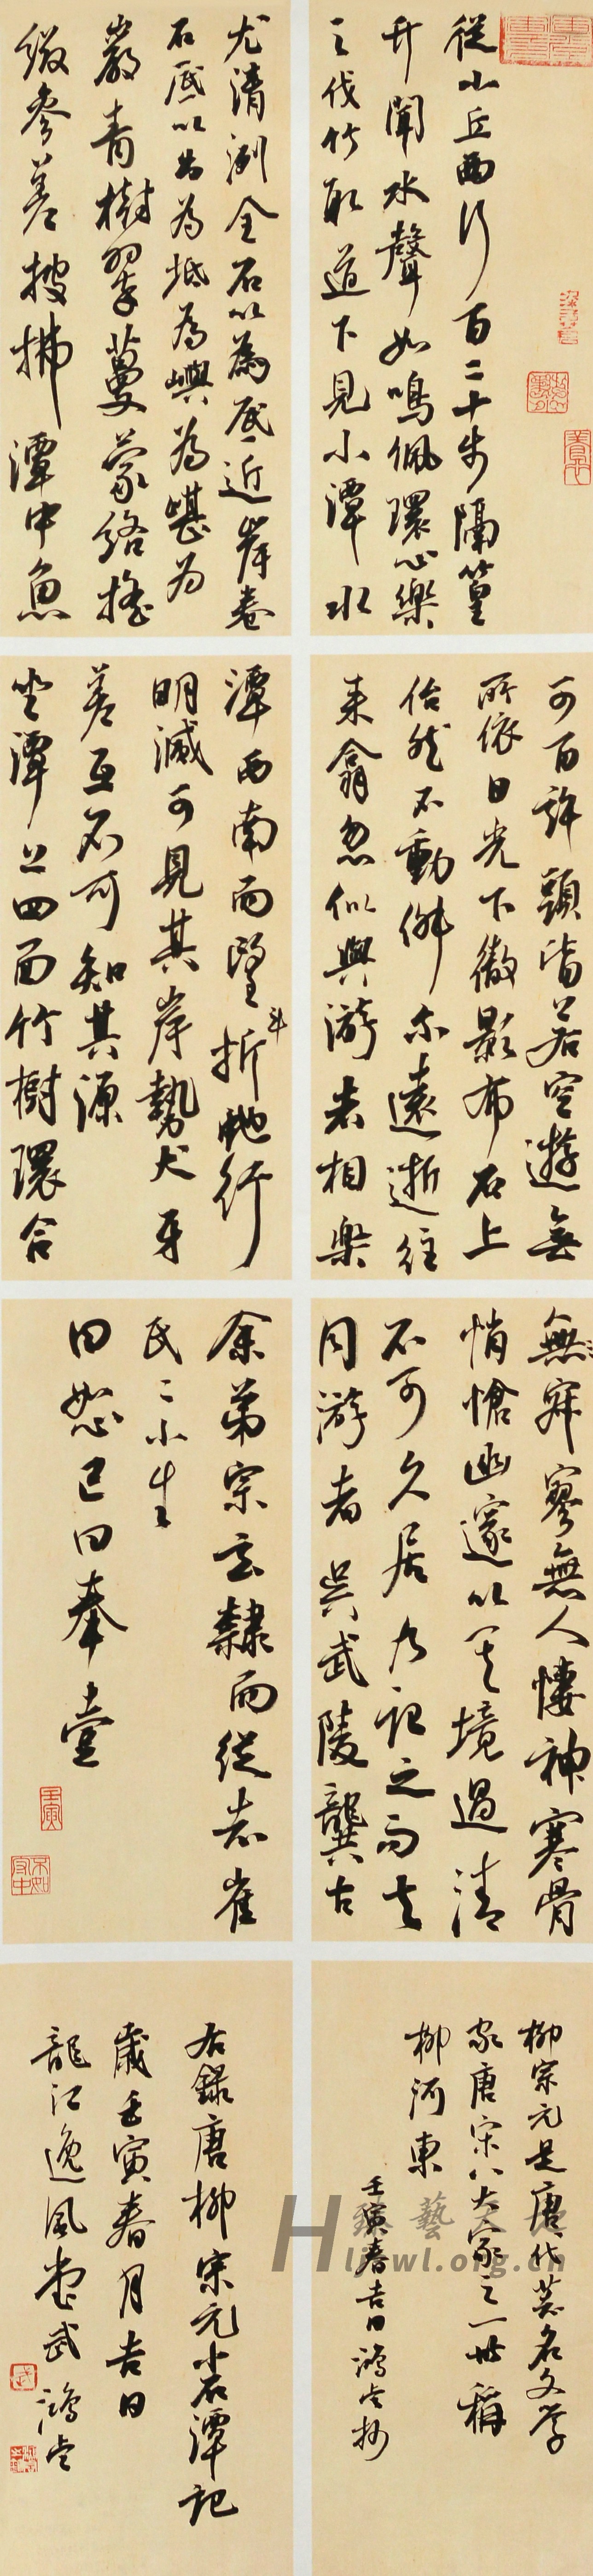 從小丘西行百二十步隔篁
竹聞水聲如鳴佩環心樂
之伐竹取道下見小潭水
尤清冽全石以為底近岸卷
石底以出為坻為嶼為嵁為
巖青樹翠蔓蒙絡搖
綴參差披拂潭中魚
可百許頭皆若空遊無
所依日光下徹影布石上
佁然不動俶尔遠逝往
来翕忽似與游者相樂
潭西南而望斗折蛇行
明滅可見其岸勢犬牙
差互不可知其源
坐潭上四面竹樹環合
無寂寥無人悽神寒骨
悄愴幽邃以其境過清
不可久居乃記之而去
同游者吳武陵龔古
余弟宗玄隸而從者崔
氏二小生
曰恕己曰奉壹
柳宗元是唐代著名文学
家唐宋八大家之一世稱
柳河東
壬寅春吉日鴻
右錄唐柳宗元小石潭記
歲壬寅春月吉日
龍江逸風堂武鴻
H
hljswl.org.cn